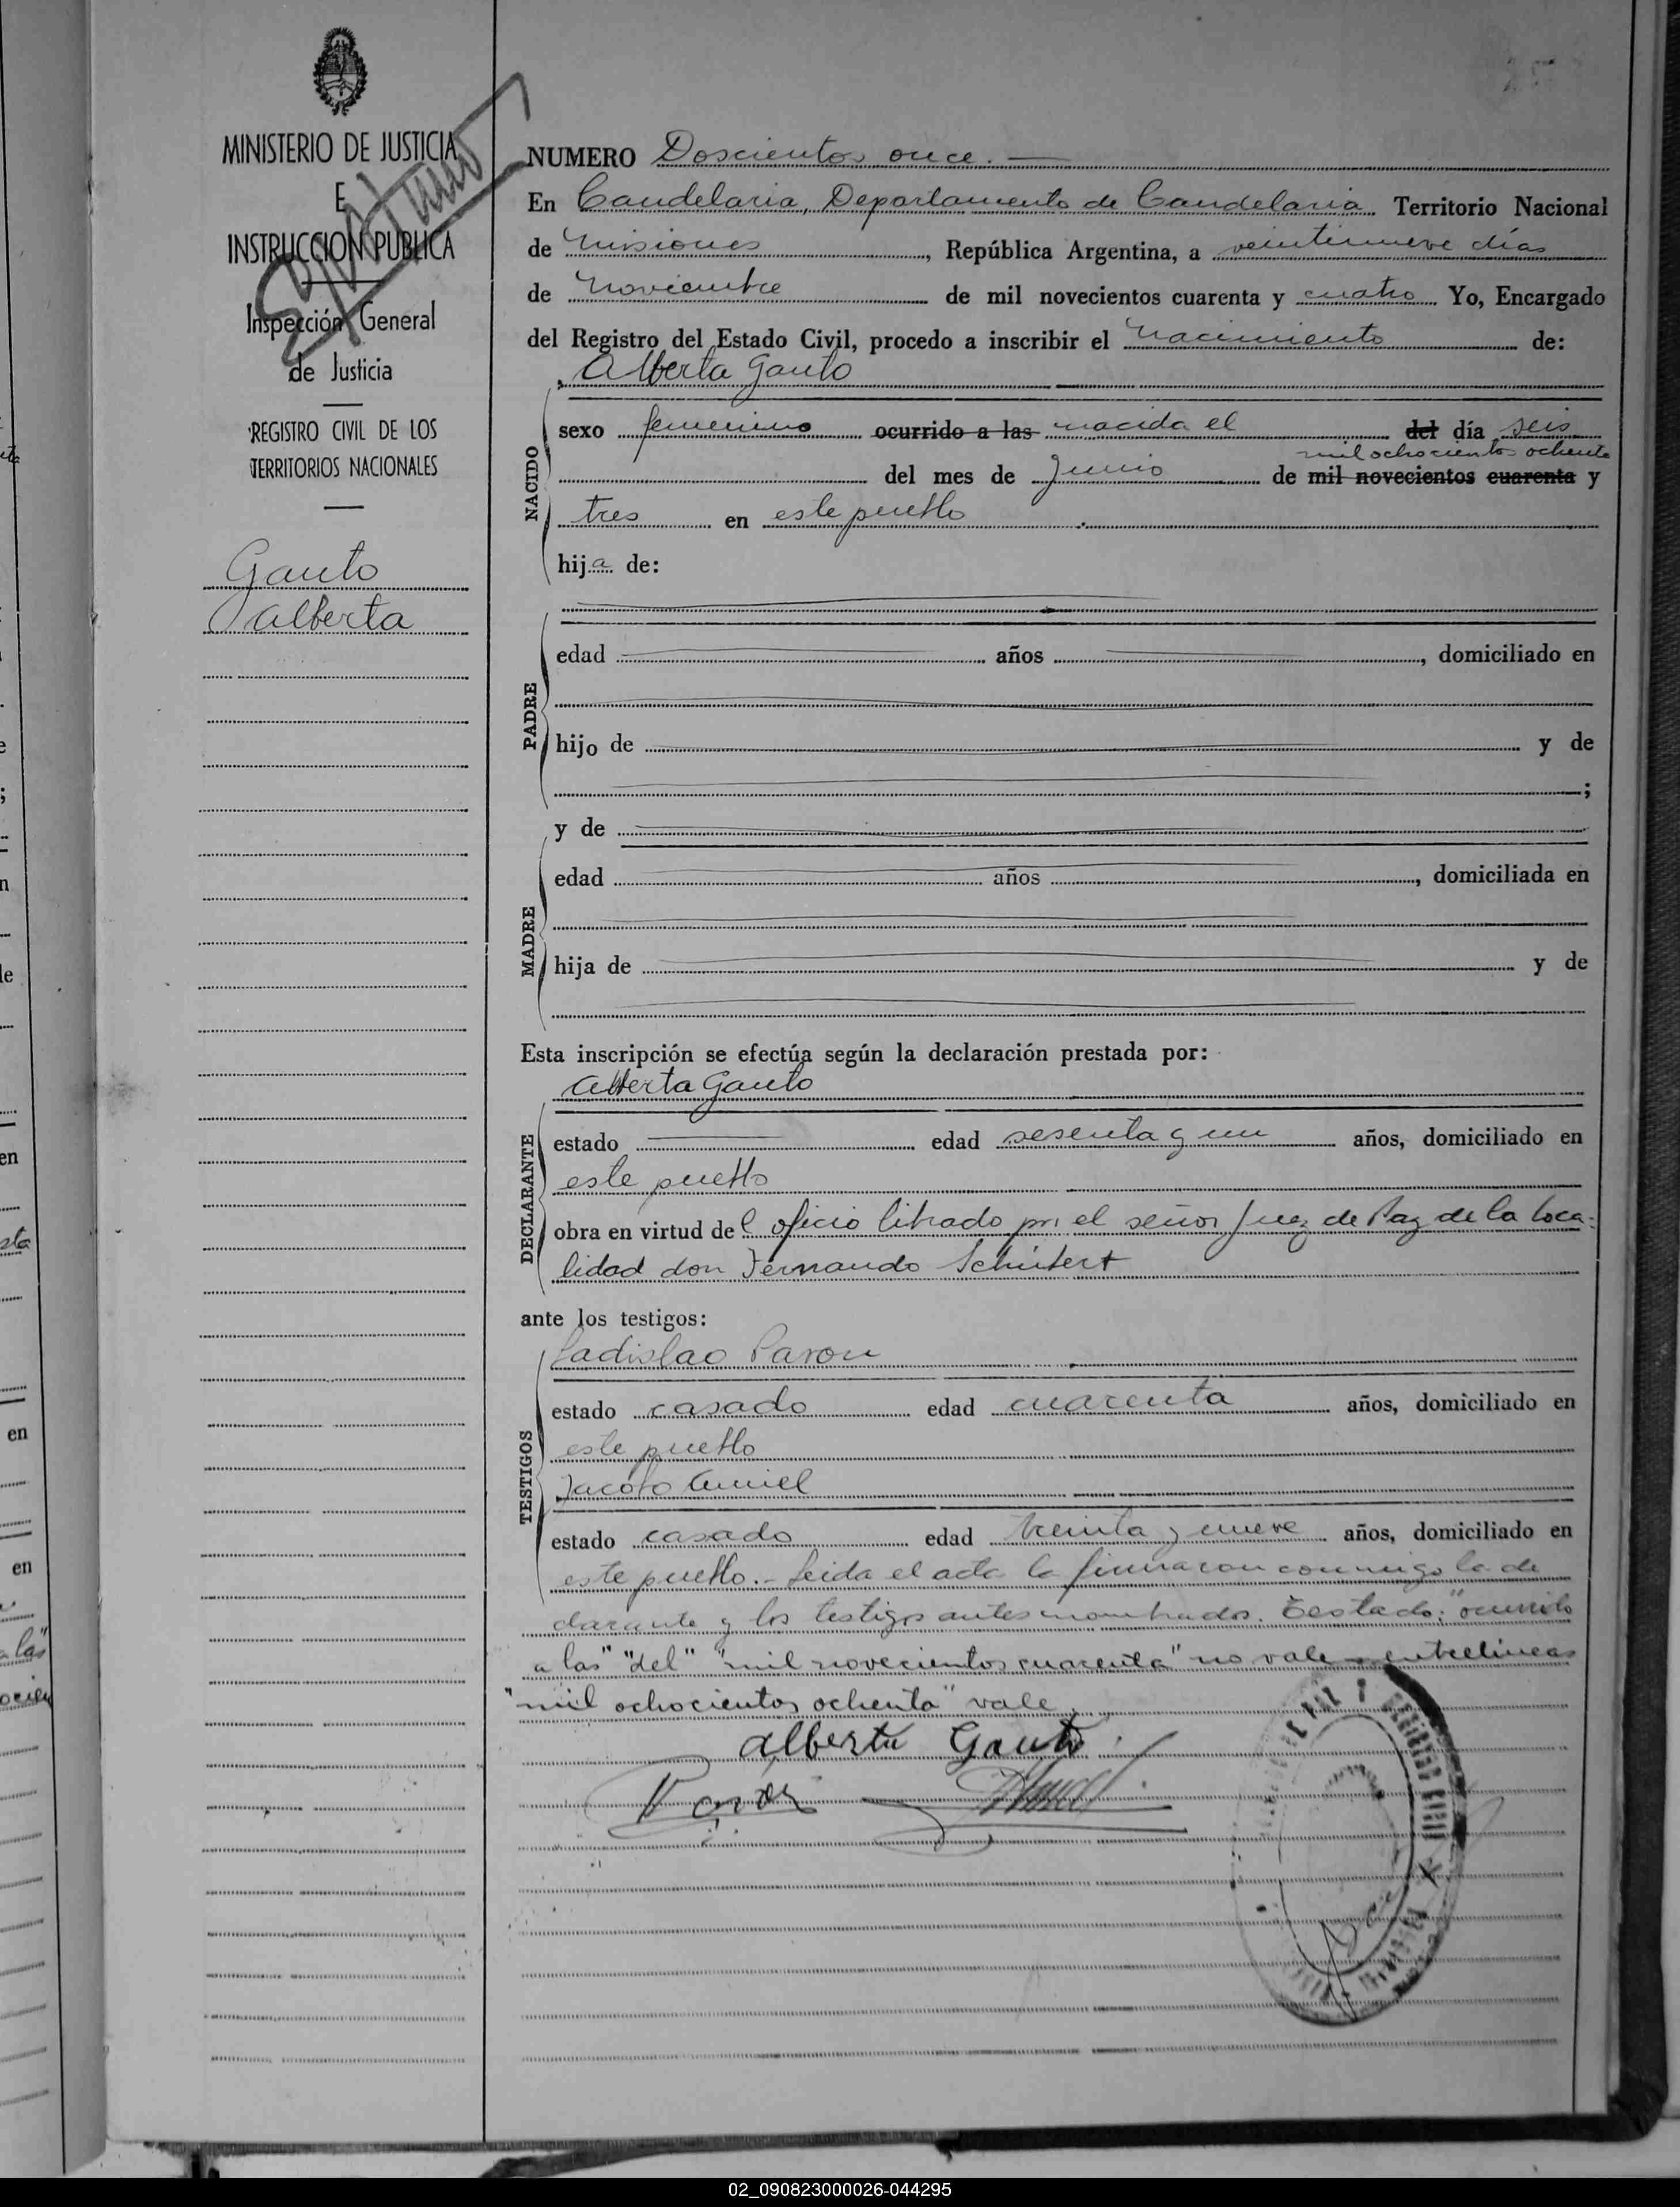 MINISTERIO DE JUSTICIA
E
INSTRUCCION PUBLICA
Inspección General
de Justicia
REGISTRO CIVIL DE LOS
TERRITORIOS NACIONALES
Gauto
Alberta
NUMERO Doscientos once.
En Candelaria, Departamento de Candelaria Territorio Nacional
de Misiones, República Argentina, a veintinueve días
de Noviembre de mil novecientos cuarenta y cuatro Yo, Encargado
del Registro del Estado Civil, procedo a inscribir el nacimiento de:
Alberta Gauto
NACIDO
sexo femenino ocurrido a las nacida el del día seis
mil ochocientos ochenta
del mes de Junio de mil novecientos cuarenta y
tres en este pueblo
hija de:
PADRE
edad años, domiciliado en
hijo de y de
;
y de
MADRE
edad años, domiciliada en
hija de y de
Esta inscripción se efectúa según la declaración prestada por:
Alberta Gauto
DECLARANTE
estado edad sesenta y un años, domiciliado en
este pueblo
obra en virtud del oficio librado por el señor Juez de Paz de la loca-
lidad don Fernando Schubert
ante los testigos:
TESTIGOS
Ladislao Pavon
estado casado edad cuarenta años, domiciliado en
este pueblo
Jacobo Amiel
estado casado edad treinta y nueve años, domiciliado en
este pueblo.- Leida el acta la firmaron conmigo la de
clarante y los testigos antes nombrados. Testado: "ocurrido
a las" "del" "mil novecientos cuarenta" no vale - entrelineas
"mil ochocientos ochenta" vale
Alberta Gauto
02_090823000026-044295